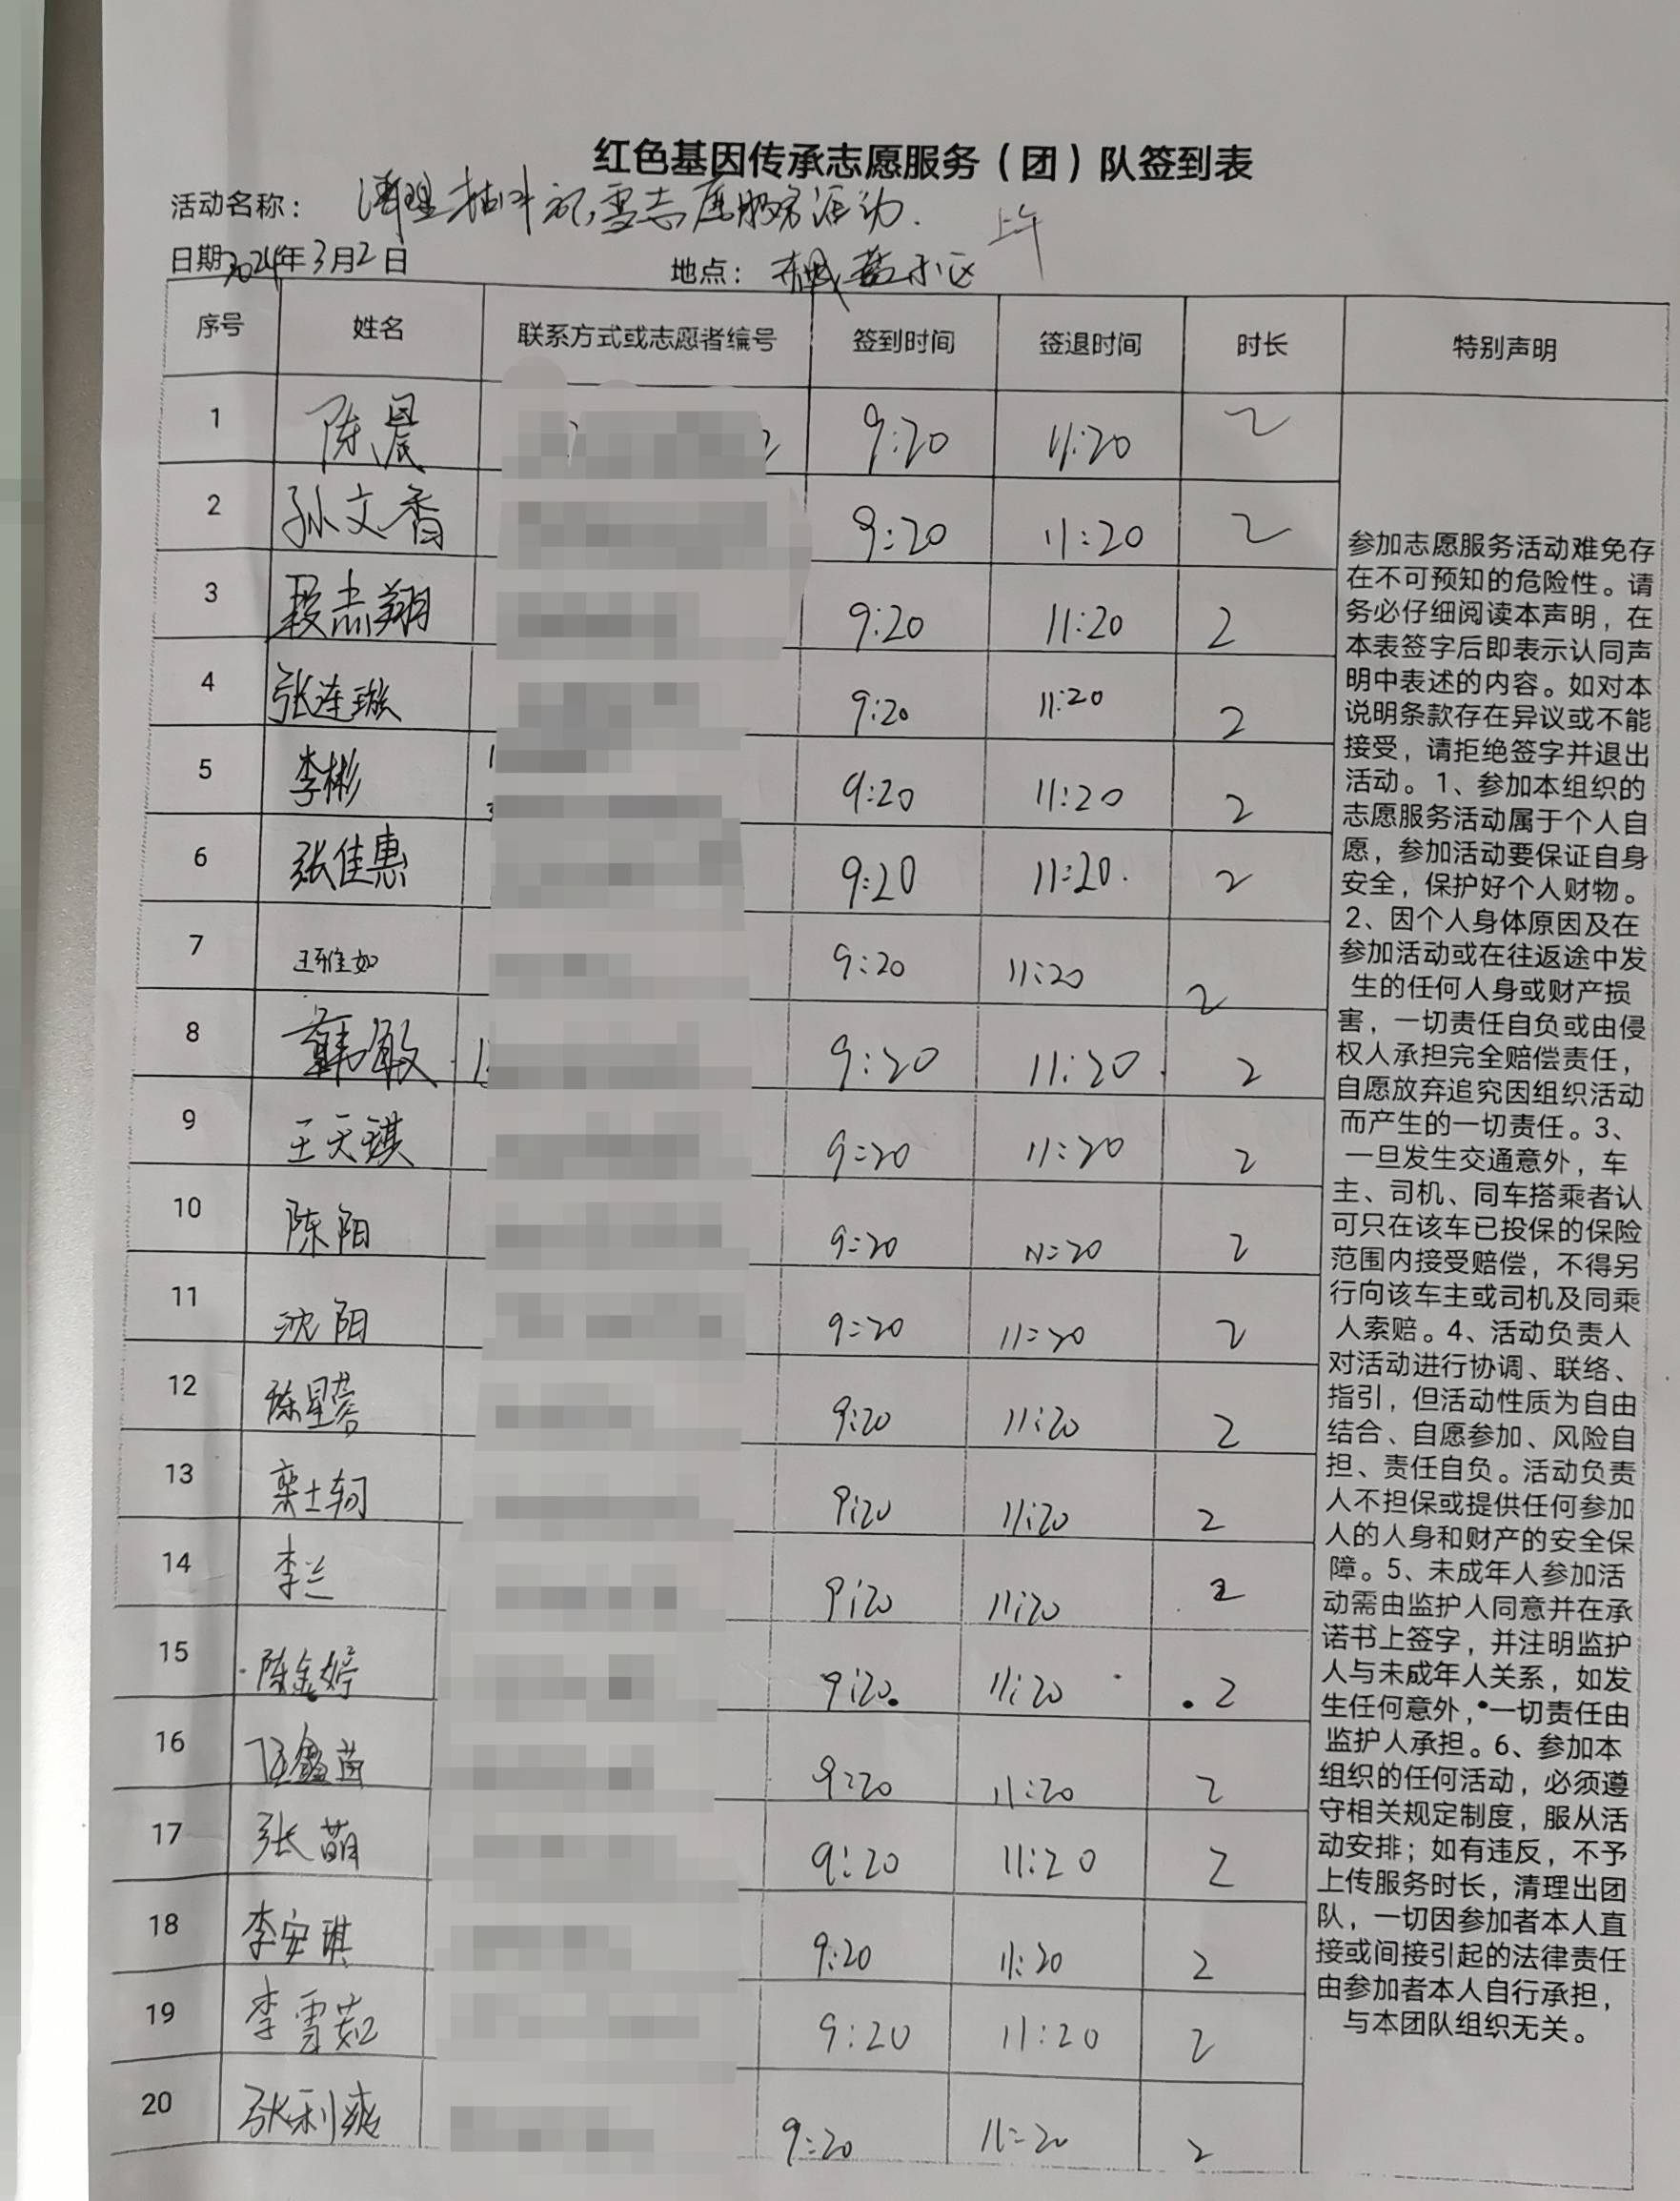 红色基因传承志愿服务（团）队签到表
活动名称： 清理 志愿服务活动. 上午
日期2024年3月2日 地点： 小区
序号 姓名 联系方式或志愿者编号 签到时间 签退时间 时长 特别声明
1 陈晨 9:20 11:20 2
2 孙文香 9:20 11:20 2
3 段志翔 9:20 11:20 2
4 张连璇 9:20 11:20 2
5 李彬 9:20 11:20 2
6 张佳惠 9:20 11:20. 2
7 王雅如 9:20 11:20 2
8 韩敏 9:20 11:20. 2
9 王天琪 9:20 11:20 2
10 陈阳 9:20 11:20 2
11 沈阳 9:20 11:20 2
12 陈星 9:20 11:20 2
13 栾士轲 9:20 11:20 2
14 李兰 9:20 11:20 2
15 陈金婷 9:20 11:20 2
16 9:20 11:20 2
17 张萌 9:20 11:20 2
18 李安琪 9:20 11:20 2
19 李雪茹 9:20 11:20 2
20 张利爽 9:20 11:20 2
参加志愿服务活动难免存
在不可预知的危险性。请
务必仔细阅读本声明，在
本表签字后即表示认同声
明中表述的内容。如对本
说明条款存在异议或不能
接受，请拒绝签字并退出
活动。1、参加本组织的
志愿服务活动属于个人自
愿，参加活动要保证自身
安全，保护好个人财物。
2、因个人身体原因及在
参加活动或在往返途中发
生的任何人身或财产损
害，一切责任自负或由侵
权人承担完全赔偿责任，
自愿放弃追究因组织活动
而产生的一切责任。3、
一旦发生交通意外，车
主、司机、同车搭乘者认
可只在该车已投保的保险
范围内接受赔偿，不得另
行向该车主或司机及同乘
人索赔。4、活动负责人
对活动进行协调、联络、
指引，但活动性质为自由
结合、自愿参加、风险自
担、责任自负。活动负责
人不担保或提供任何参加
人的人身和财产的安全保
障。5、未成年人参加活
动需由监护人同意并在承
诺书上签字，并注明监护
人与未成年人关系，如发
生任何意外，一切责任由
监护人承担。6、参加本
组织的任何活动，必须遵
守相关规定制度，服从活
动安排；如有违反，不予
上传服务时长，清理出团
队，一切因参加者本人直
接或间接引起的法律责任
由参加者本人自行承担，
与本团队组织无关。